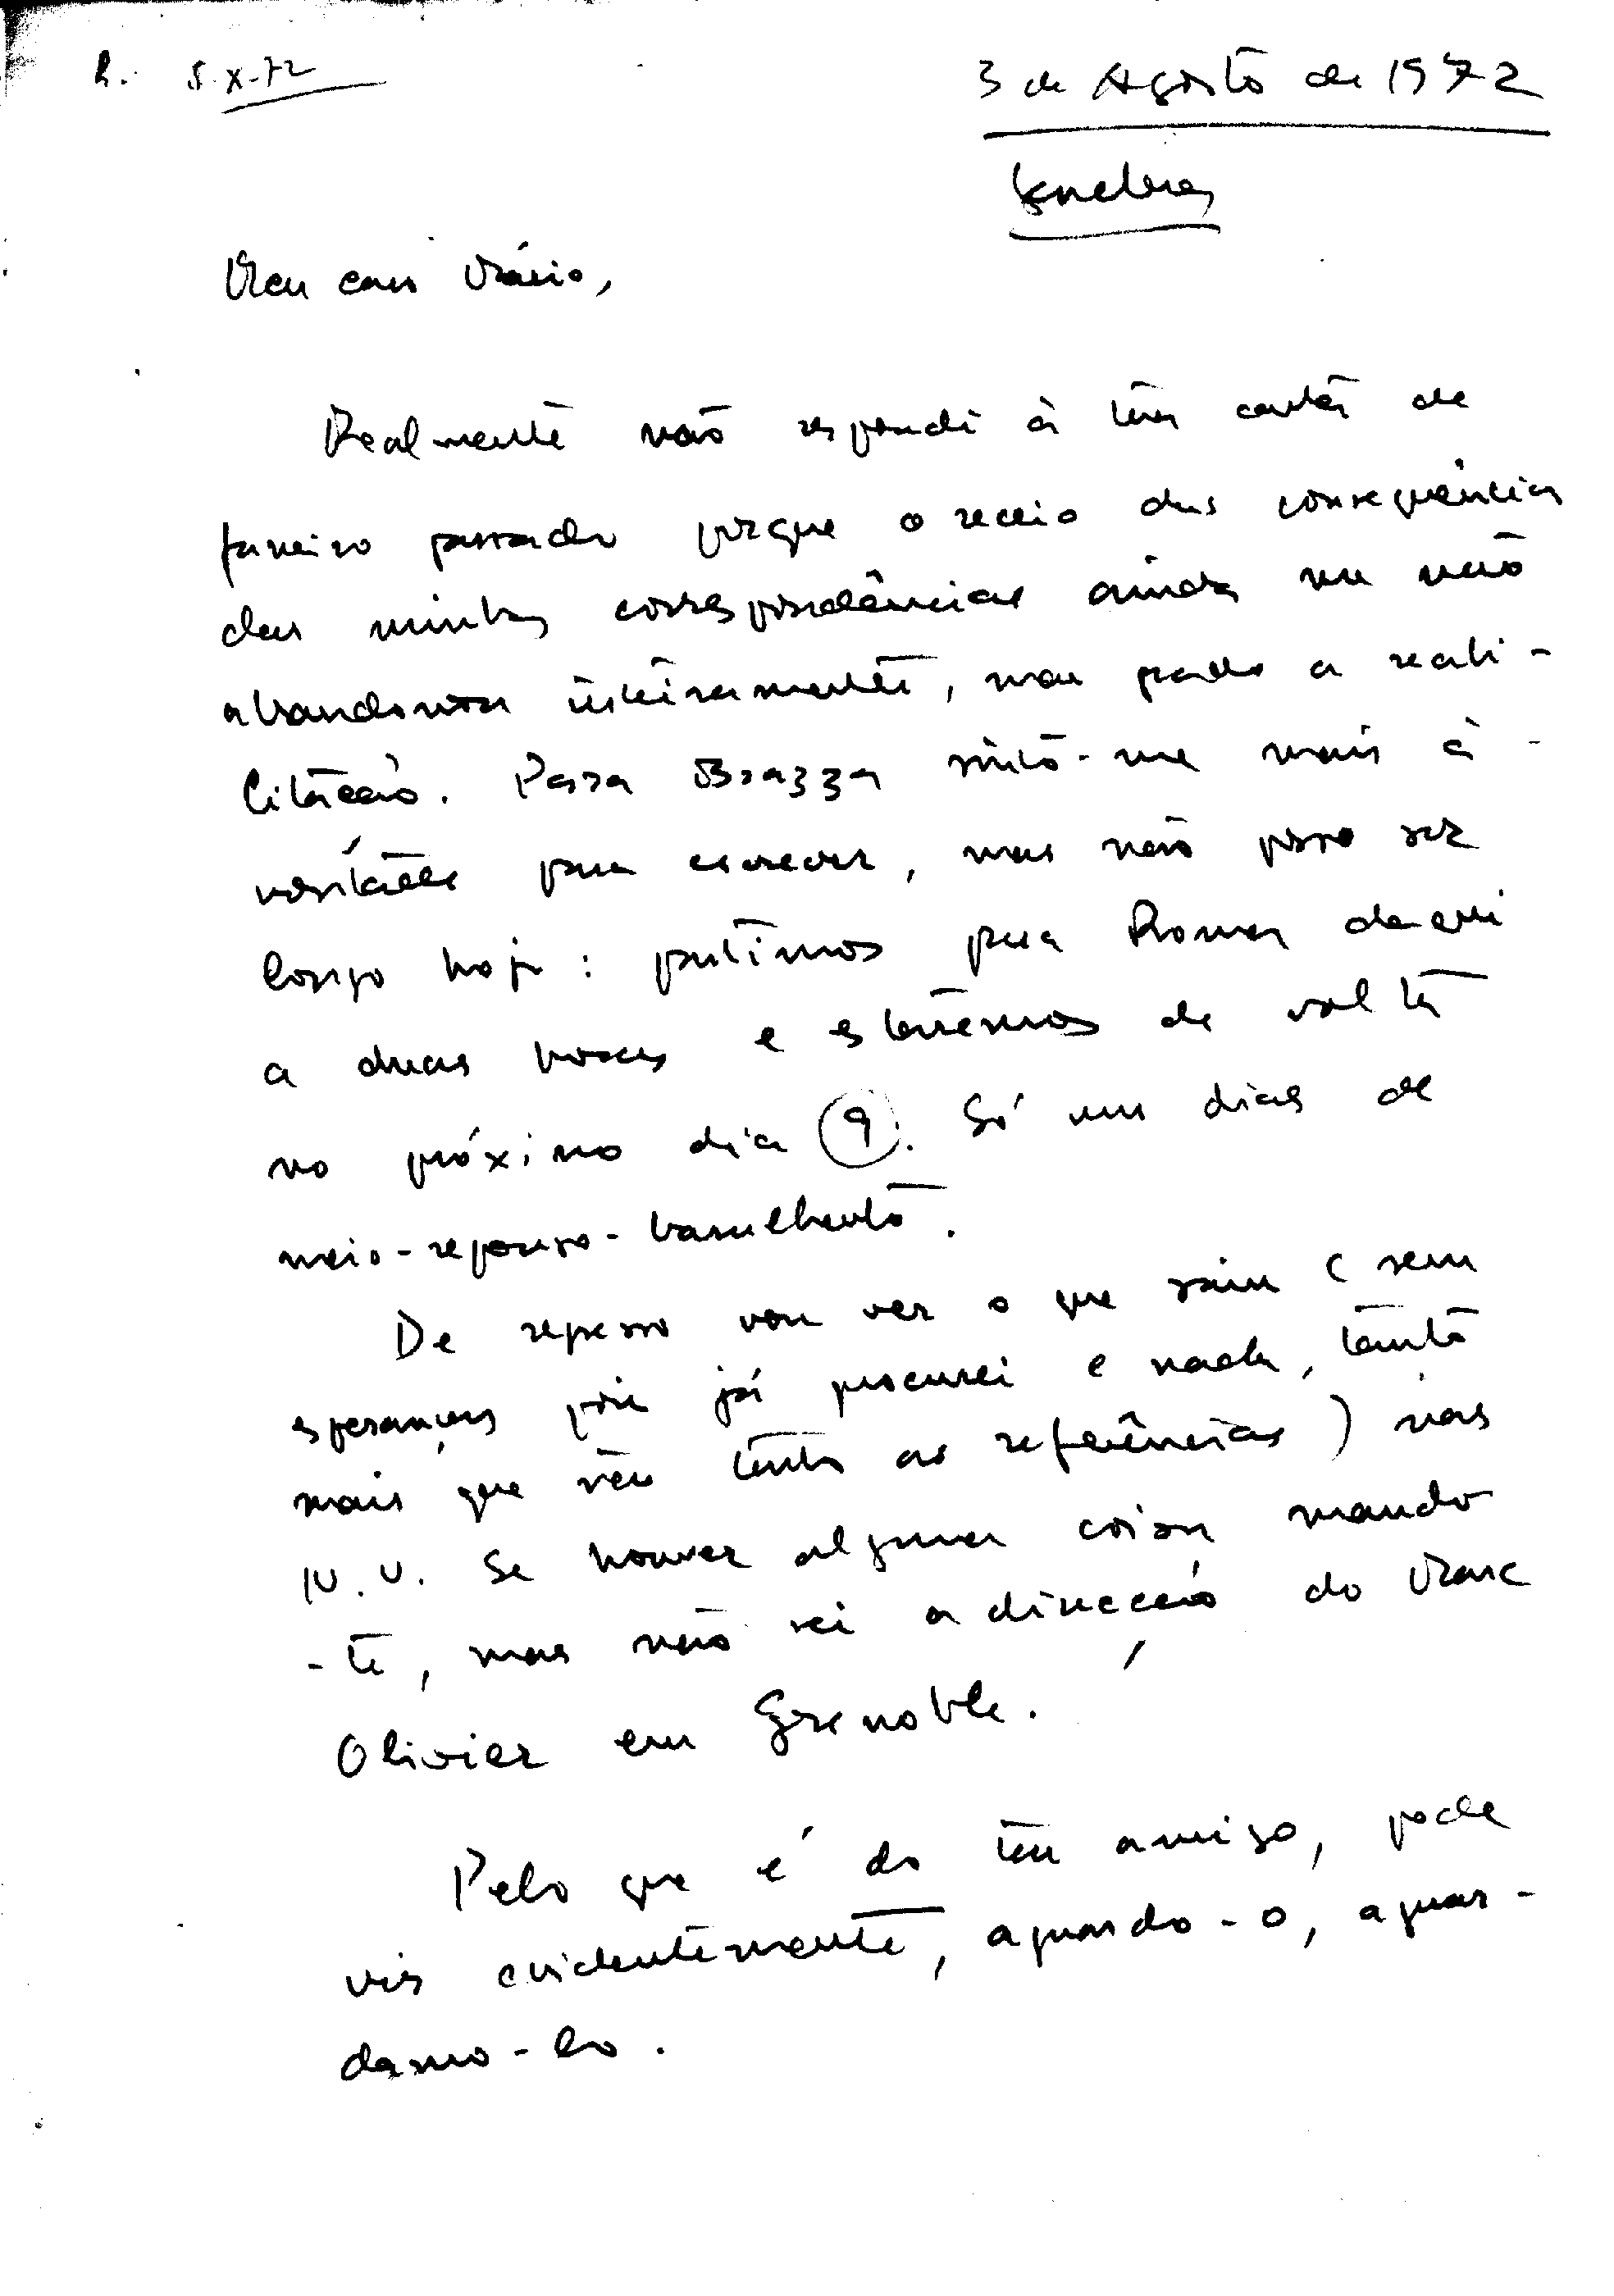 R. 5-X-72
3 de Agosto de 1972
Genebra
Meu caro Mário,
Realmente não respondi à tua carta de
Janeiro passado porque o receio das consequências
das minhas correspondências ainda me não
abandonou inteiramente, mau grado a reali-
citação. Para Brazza sinto-me mais à-
vontade para escrever, mas não posso ser
longo hoje: partimos para Roma daqui
a duas horas e estaremos de volta
no próximo dia 9. Só uns dias de
meio-repouso-barulhento.
De regresso vou ver o que saiu (sem
esperanças pois já procurei e nada, tanto
mais que não tenho as referências) nas
N.U. Se houver alguma coisa mando
-te, mas não sei a direcção do Marc
Olivier em Grenoble.
Pelo que é do teu amigo, pode
vir evidentemente, aguardo-o, aguar-
damo-lo.